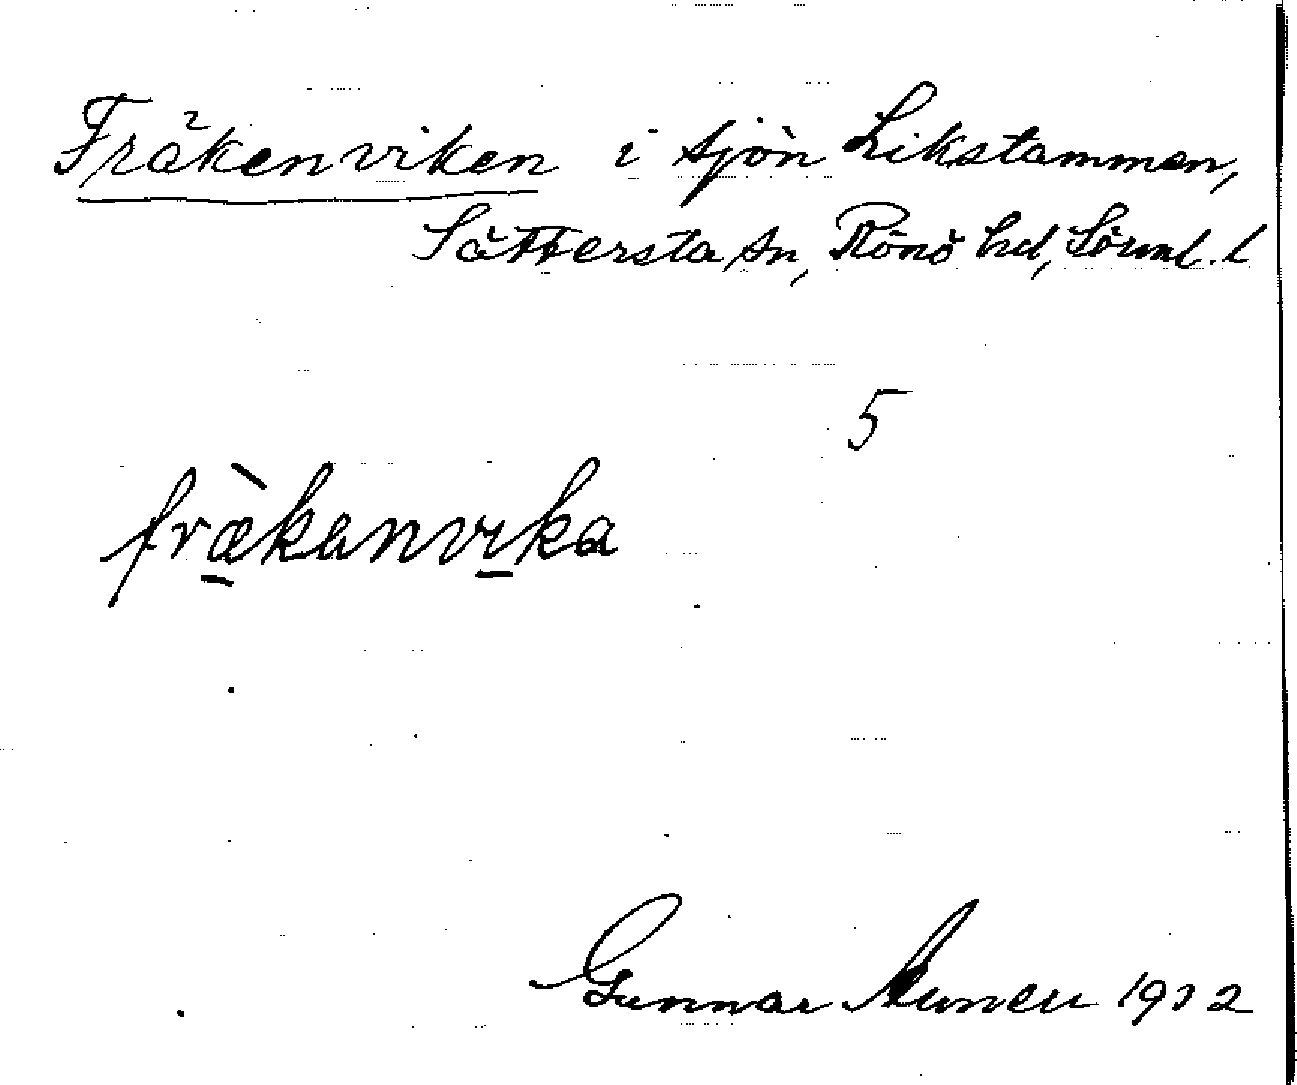 Fräkenviken i sjön Likstammen,
Sättersta sn, Rönö hd, Sörml. l
5
fræ̀kanvika
Gunnar 1932